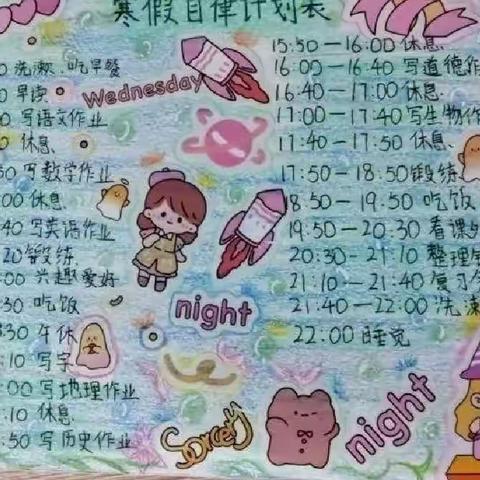 寒假自律计划表
0 洗漱、吃早餐
0 早读
0 写语文作业
0 休息
50 写数学作业
:00 休息
:40 写英语作业
:20 锻炼
:00 兴趣爱好
:30 吃饭
:30 午休
:10 写字
:00 写地理作业
:10 休息
:50 写历史作业
Wednesday
night
Sorcery
night
15:50—16:00 休息
16:00—16:40 写道德作
16:40—17:00 休息
17:00—17:40 写生物作
17:40—17:50 休息
17:50—18:50 锻炼
18:50—19:50 吃饭
19:50—20:30 看课外
20:30—21:10 整理
21:10—21:40 复习
21:40—22:00 洗漱
22:00 睡觉